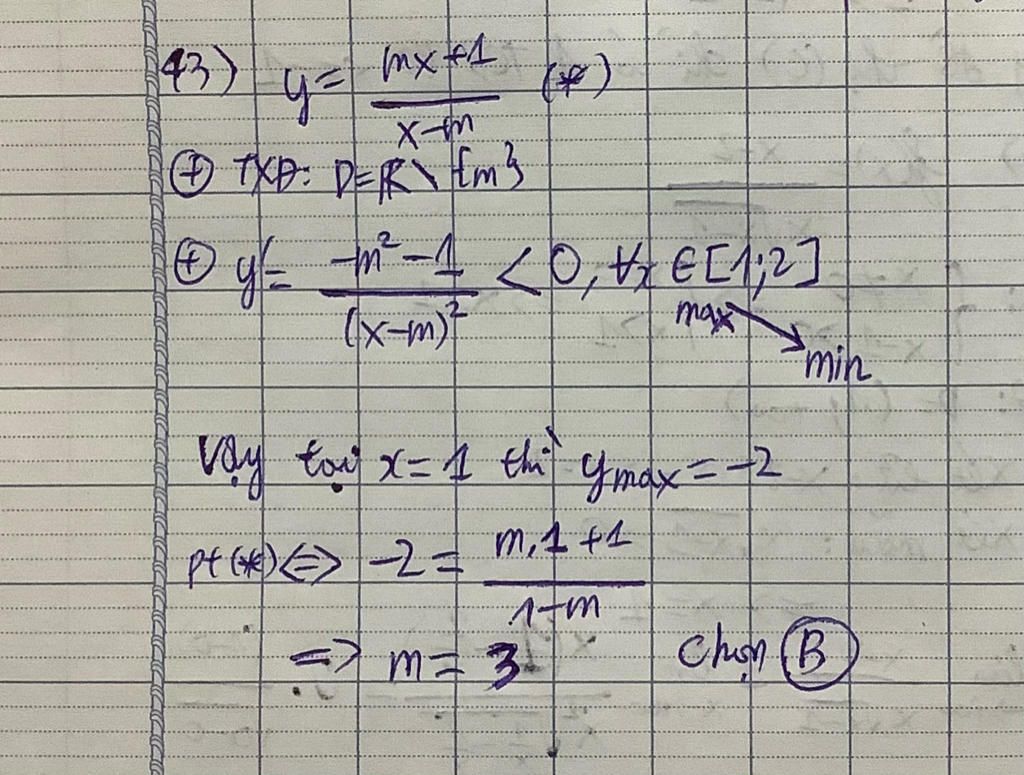 43) y = (mx+1)/(x-m) (*)
⊕ TXĐ: D=ℝ∖{m}
⊕ y' = (-m²-1)/(x-m)² < 0, ∀x ∈ [1;2]
max
min
Vậy tại x=1 thì y_max = -2
pt(*) <=> -2 = (m.1+1)/(1-m)
=> m = 3 Chọn B